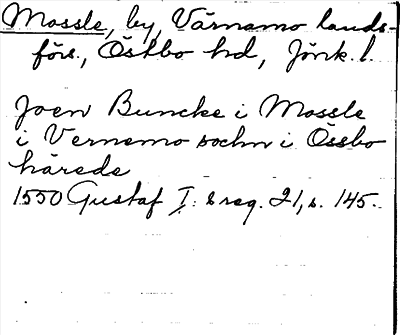 Mossle, by, Värnamo lands-
förs., Östbo hd, Jönk. l.
Joen Buncke i Mossle
i Vernamo sochn i Össbo
härede
1550 Gustaf I: s reg. 21, s. 145.